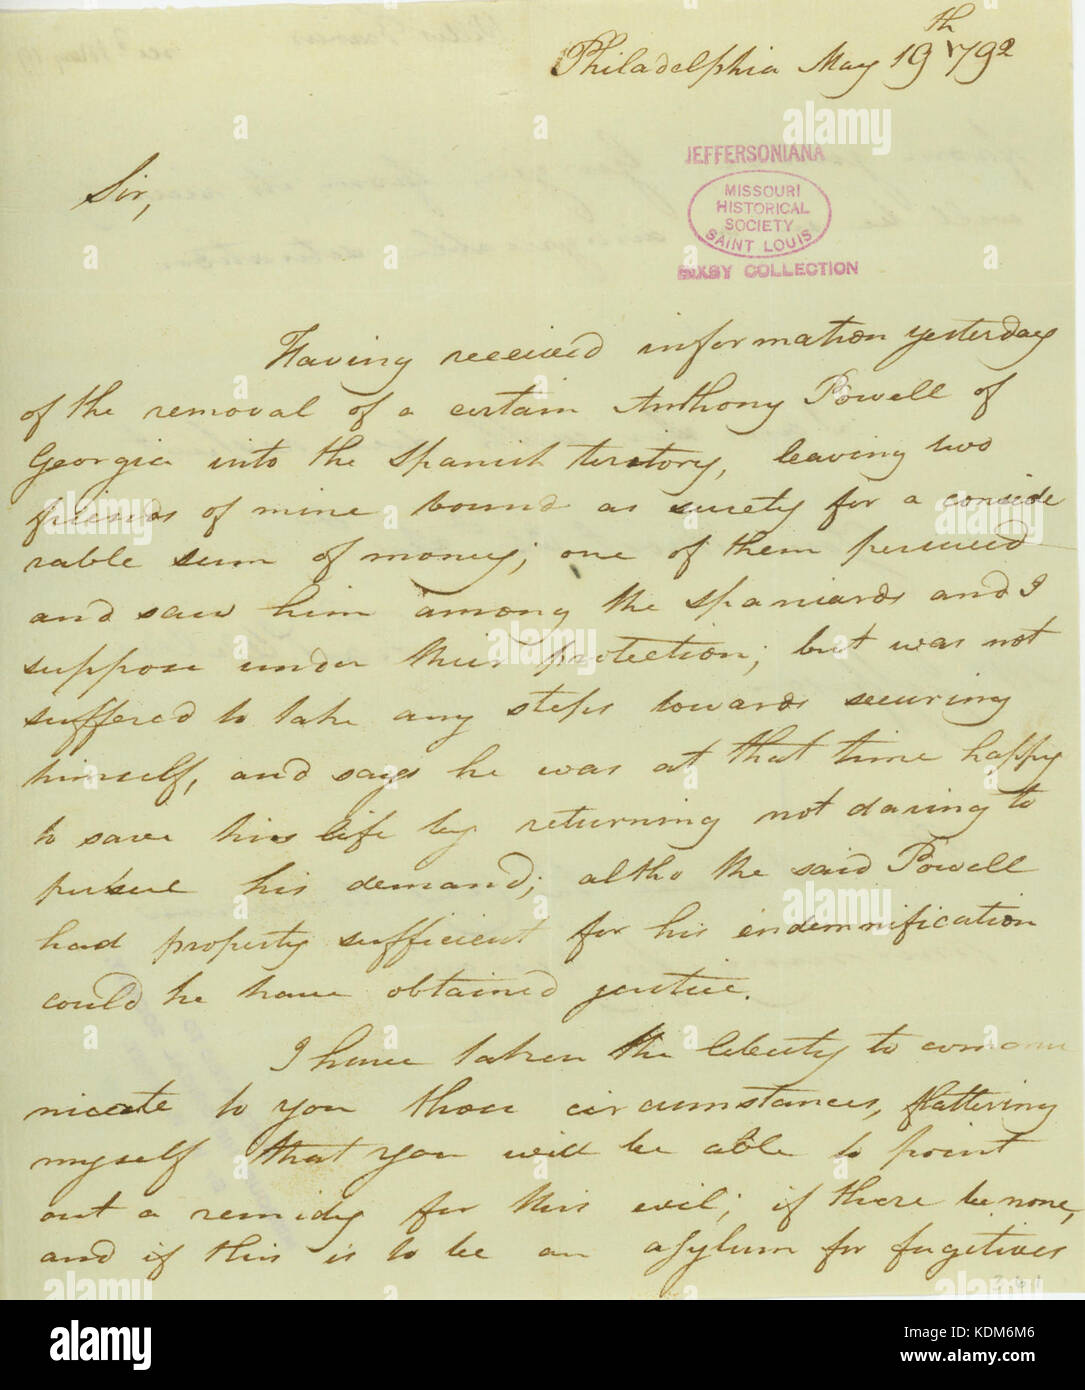 Philadelphia May 19th 1792
JEFFERSONIANA
MISSOURI
HISTORICAL
SOCIETY
SAINT LOUIS
BIXBY COLLECTION
Sir,
Having received information yesterday
of the removal of a certain Anthony Powell of
Georgia into the Spanish territory, leaving two
friends of mine bound as surety for a conside
rable sum of money; one of them persued
and saw him among the Spaniards and I
suppose under their protection; but was not
suffered to take any steps towards securing
himself, and says he was at that time happy
to save his life by returning not daring to
pursue his demand; altho the said Powell
had property sufficient for his indemnification
could he have obtained justice.
I have taken the liberty to commu
nicate to you these circumstances, flattering
myself that you will be able to point
out a remidy for this evil; if there be none,
and if this is to be an asylum for fugitives
261
a alamy
alamy
Image ID: KDM6M6
www.alamy.com